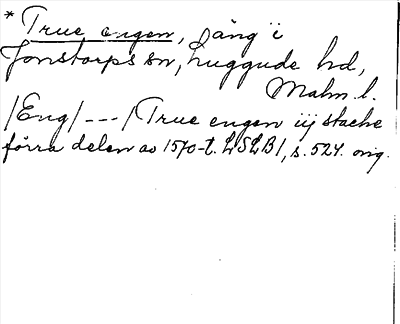 * True engen, äng i
Jonstorps sn, Luggude hd,
Malm. l.
/Eng/ --- / True engen iij stache
förra delen av 1570-t. LSLB 1, s. 524. orig.